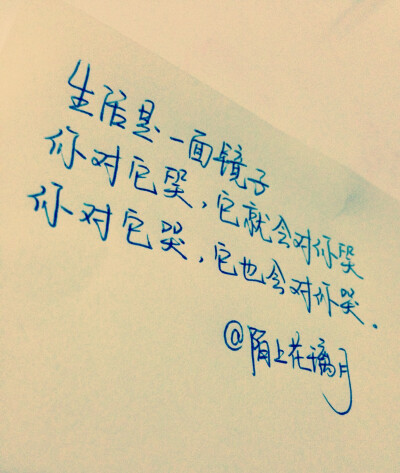 生活是一面镜子
你对它哭，它就会对你哭
你对它哭，它也会对你哭.
@陌上花漓月